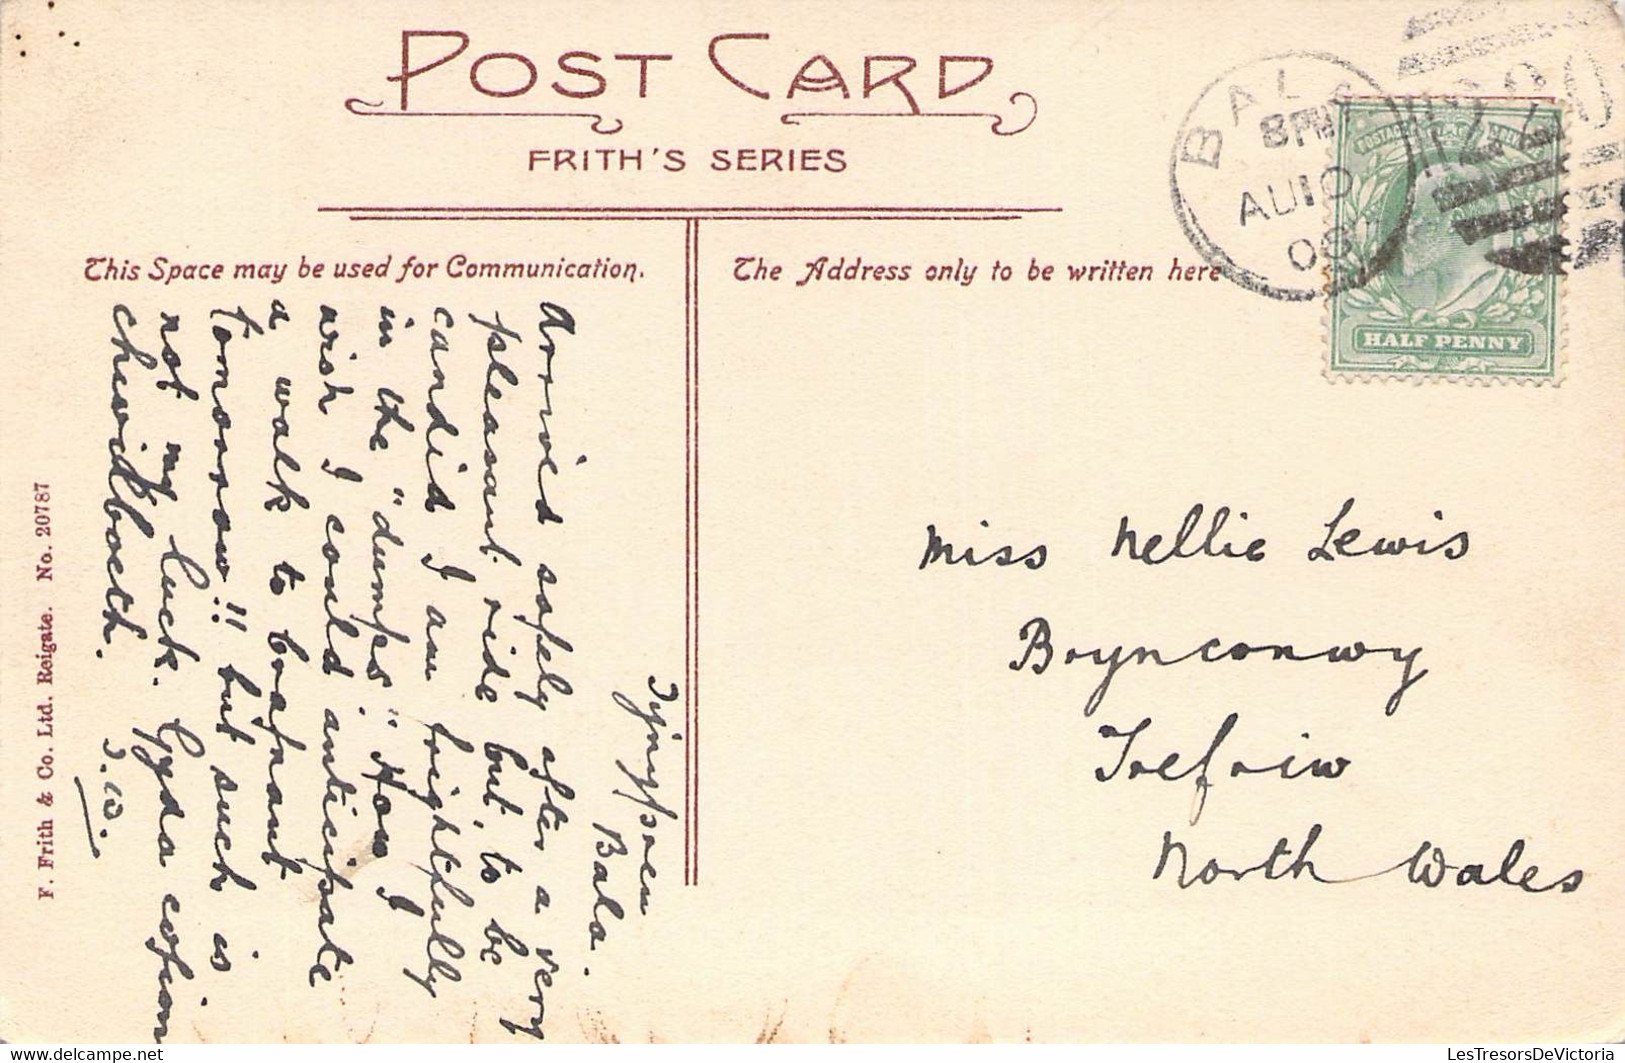 POST CARD
FRITH'S SERIES
This Space may be used for Communication.
The Address only to be written here
BALA
8 PM
AU 10
HALF PENNY
Bala.
Arrived safely after a very
pleasant ride but, to be
candid I am frightfully
in the "dumps". How I
wish I could anticipate
a walk to
tomorrow!! but such is
not my luck. Gyda cofion
Miss Nellie Lewis
Brynconwy
Trefriw
North Wales
F. Frith & Co. Ltd. Reigate. No. 20787
LesTresorsDeVictoria